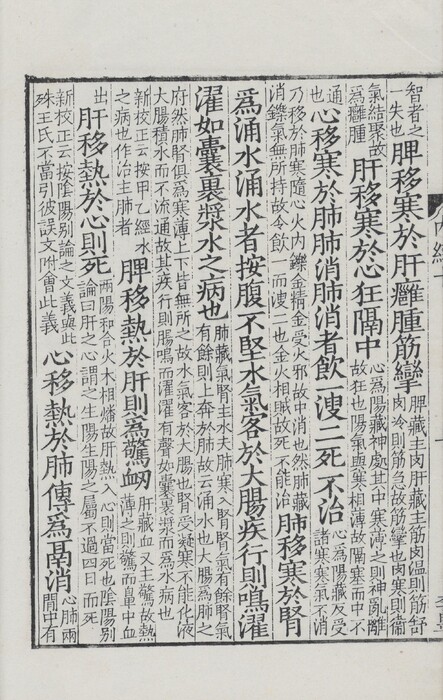 智者之一失也脾移寒於肝癰腫筋攣脾藏主肉肝藏主筋肉温則筋舒肉冷則筋急故筋攣也肉寒則衞
氣結聚故爲癰腫肝移寒於心狂隔中心爲陽藏神處其中寒薄之則神亂離故狂也陽氣與寒相薄故隔塞而中不
通也心移寒於肺肺消肺消者飲一溲二死不治心爲陽藏反受諸寒寒氣不消
乃移於肺寒隨心火内鑠金精金受火邪故中消也然肺藏消鑠氣無所持故令飲一而溲二也金火相賊故死不能治肺移寒於腎
爲涌水涌水者按腹不堅水氣客於大腸疾行則鳴濯
濯如囊裹漿水之病也肺藏氣腎主水夫肺寒入腎腎氣有餘腎氣有餘則上奔於肺故云涌水也大腸爲肺之
府然肺腎俱爲寒薄上下皆無所之故水氣客於大腸也腎受凝寒不能化液大腸積水而不流通故其疾行則腸鳴而濯濯有聲如囊裹漿而爲水病也
新校正云按甲乙經水之病也作治主肺者脾移熱於肝則爲驚衄肝藏血又主驚故熱薄之則驚而鼻中血
出肝移熱於心則死兩陽和合火木相燔故肝熱入心則當死也陰陽别論曰肝之心謂之生陽生陽之屬不過四日而死
新校正云按陰陽别論之文義與此殊王氏不當引彼誤文附會此義心移熱於肺傳爲鬲消心肺兩間中有